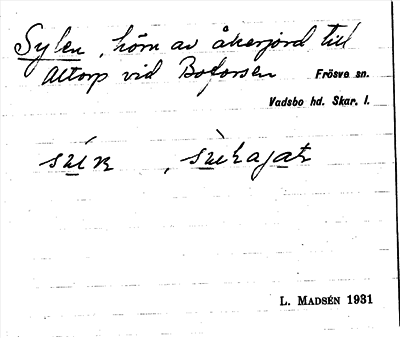 Sylen, hörn av åkerjord till
Altorp vid Boforsen Frösve sn.
Vadsbo hd. Skar. l.
L. MADSÉN 1931